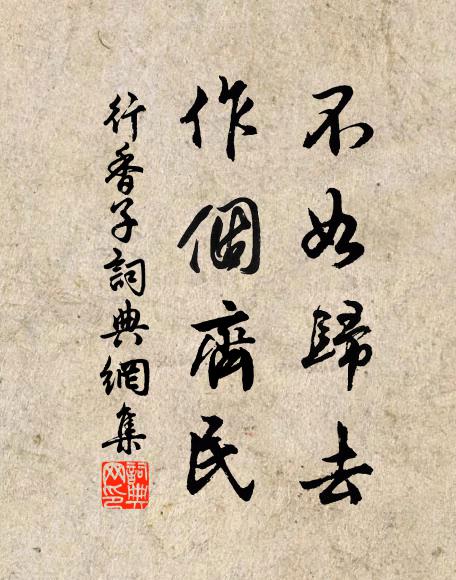 不如歸去
作個齊民
行香子詞典網集
詞典網印